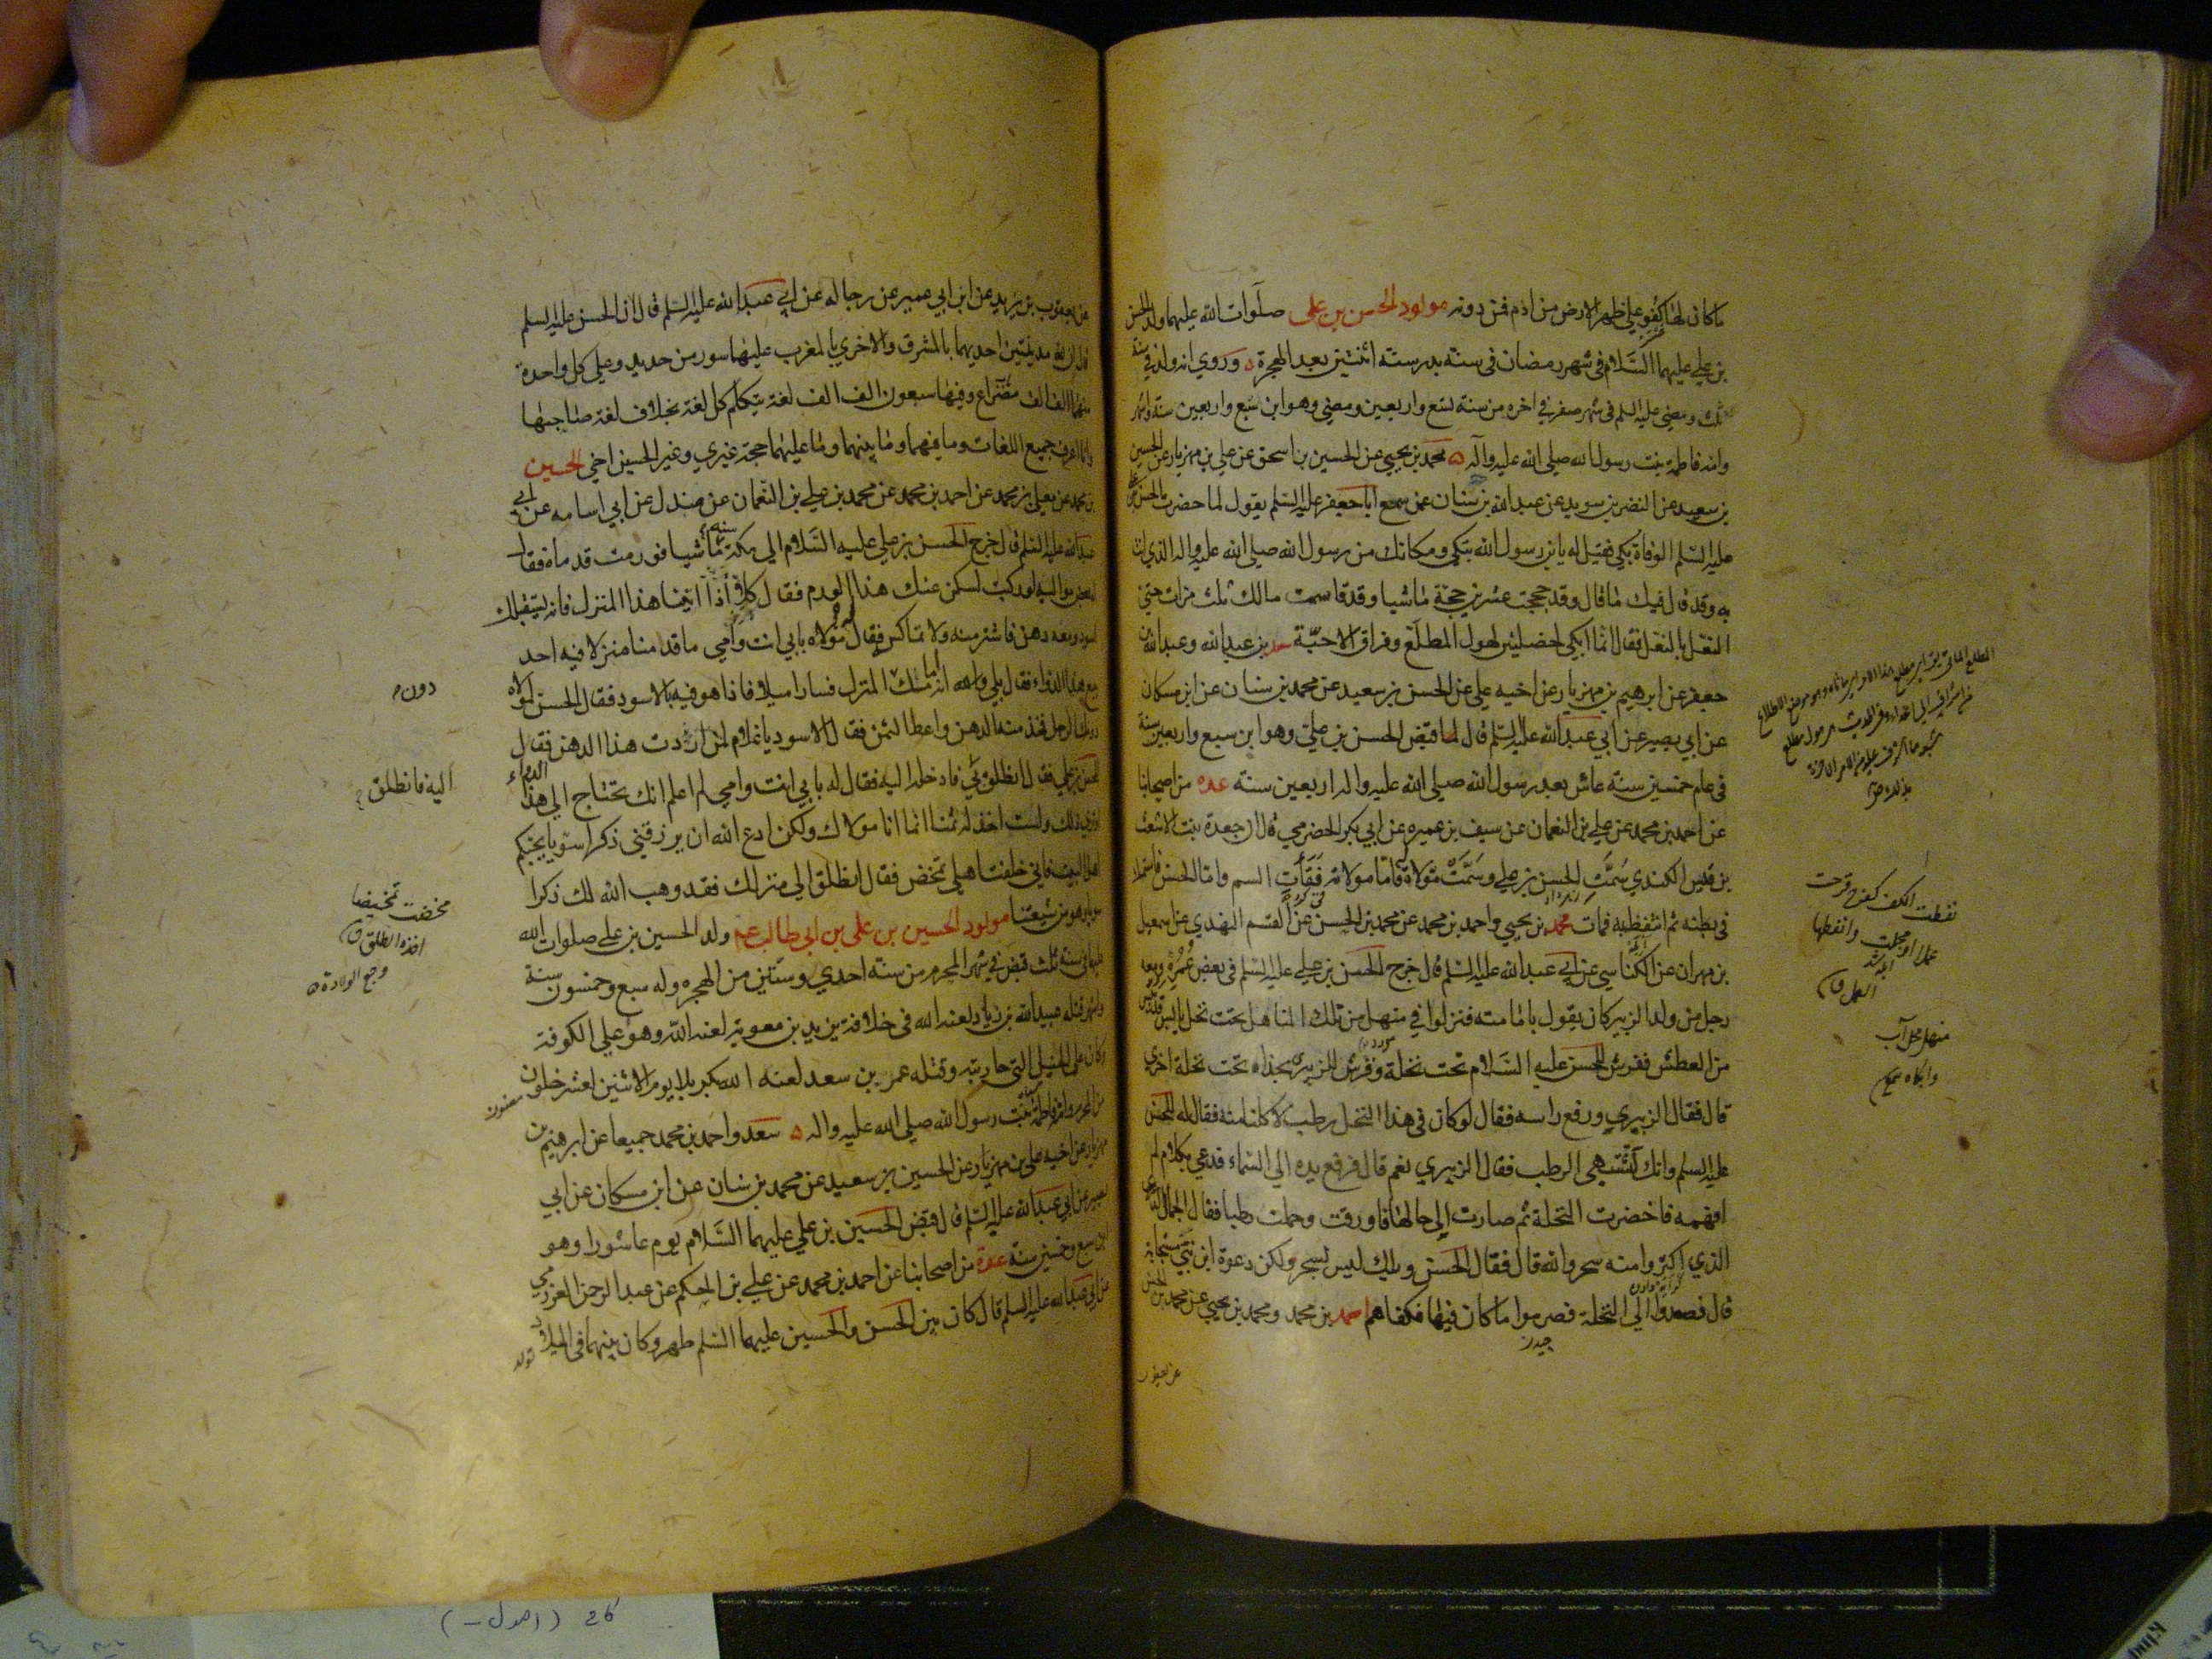 ما كان لها كفو على ظهر الارض من ادم فمن دونه مولود الحسن بن علي صلوات الله عليهما ولد الحسن
بن علي عليهما السلام في شهر رمضان في سنة بدر سنة اثنتين بعد الهجرة وروي انه ولد في سنة
ثلث ومضى عليه السلم في شهر صفر في اخره من سنة تسع واربعين ومضى وهو ابن سبع واربعين سنة واشهر
وامه فاطمة بنت رسول الله صلى الله عليه وآله محمد بن يحيى عن الحسين بن اسحق عن علي بن مهزيار عن الحسين
بن سعيد عن النضر بن سويد عن عبد الله بن سنان عمن سمع ابا جعفر عليه السلم يقول لما حضرت الحسن بن علي
عليه السلم الوفاة بكى فقيل له يا بن رسول الله تبكي ومكانك من رسول الله صلى الله عليه واله الذي انت
به وقد قال فيك ما قال وقد حججت عشرين حجة ماشيا وقد قاسمت مالك ثلث مرات حتى
النعل بالنعل فقال انما ابكي لخصلتين لهول المطلع وفراق الاحبة سعد بن عبد الله وعبد الله بن
جعفر عن ابرهيم بن مهزيار عن اخيه علي عن الحسن بن سعيد عن محمد بن سنان عن ابن مسكان
عن ابي بصير عن ابي عبد الله عليه السلم قال لما قبض الحسن بن علي وهو ابن سبع واربعين سنة
في عام خمسين سنة عاش بعد رسول الله صلى الله عليه واله اربعين سنة عده من اصحابنا
عن احمد بن محمد عن علي بن النعمان عن سيف بن عميره عن ابي بكر الحضرمي قال ان جعدة بنت الاشعث
بن قيس الكندي سمت الحسن بن علي وسمت مولاة فاما مولاته فقاءت السم واما الحسن فاستمسك
في بطنه ثم انتفط به فمات محمد بن يحيى واحمد بن محمد عن محمد بن الحسن عن القسم النهدي عن اسمعيل
بن مهران عن الكناسي عن ابي عبد الله عليه السلم قال خرج الحسن بن علي عليه السلم في بعض عمره ومعه
رجل من ولد الزبير كان يقول بامامته فنزلوا في منهل من تلك المناهل تحت نخل يابس قد يبس
من العطش ففرش للحسن عليه السلام تحت نخلة وفرش للزبيري بحذاه تحت نخلة اخرى
قال فقال الزبيري ورفع راسه فقال لو كان في هذا النخل رطب لاكلنا منه فقال له الحسن
عليه السلم وانك لتشتهي الرطب فقال الزبيري نعم قال فرفع يده الى السماء فدعى بكلام لم
افهمه فاخضرت النخلة ثم صارت الى حالها فاورقت وحملت رطبا فقال الجمال
الذي اكتروا منه سحر والله قال فقال الحسن ويلك ليس بسحر ولكن دعوة ابن نبي مستجابة
قال فصعدوا الى النخلة فصرموا ما كان فيها فكفاهم احمد بن محمد ومحمد بن يحيى عن محمد بن الحسن
نفطت الكف كفرح قرحت
عملا او مجلت وانفطها
العمل ق
منهل محل آب
عن يعقوب
عن يعقوب بن يزيد عن ابن ابي عمير عن رجاله عن ابي عبد الله عليه السلم قال ان الحسن عليه السلم
قال ان لله مدينتين احديهما بالمشرق والاخرى بالمغرب عليها سور من حديد وعلى كل واحدة
منهما الف الف مصراع وفيها سبعون الف الف لغة يتكلم كل لغة بخلاف لغة صاحبها
وانا اعرف جميع اللغات وما فيهما وما بينهما وما عليهما حجة غيري وغير الحسين اخي الحسين
بن محمد عن معلى بن محمد عن احمد بن محمد عن محمد بن علي بن النعمان عن صندل عن ابي اسامه عن ابي
عبد الله عليه السلم قال خرج الحسن بن علي عليه السلام الى مكة سنة ماشيا فورمت قدماه فقال
له بعض مواليه لو ركبت لسكن عنك هذا الورم فقال كلا اذا اتينا هذا المنزل فانه يستقبلك
اسود ومعه دهن فاشتر منه ولا تماكس فقال له مولاه بابي انت وامي ما قدمنا منزلا فيه احد
يبيع هذا الدواء فقال بلى والله انه امامك المنزل فسارا ميلا فاذا هو فيه بالاسود فقال الحسن لمولاه
دونك الرجل فخذ منه الدهن واعطه الثمن فقال الاسود يا غلام لمن اردت هذا الدهن فقال
للحسن بن علي فقال انطلق بي فادخله اليه فقال له بابي انت وامي لم اعلم انك تحتاج الى هذا الدواء
او ترى ذلك ولست اخذ له ثمنا انما انا مولاك ولكن ادع الله ان يرزقني ذكرا سويا يحبكم
اهل البيت فاني خلفت اهلي تمخض فقال انطلق الى منزلك فقد وهب الله لك ذكرا
سويا وهو من شيعتنا مولود الحسين بن علي بن ابي طالب عم ولد الحسين بن علي صلوات الله
عليهما في سنة ثلث قبض في شهر المحرم من سنة احدى وستين من الهجره وله سبع وخمسون سنة
واشهر قتله عبيد الله بن زياد لعنه الله في خلافة يزيد بن معوية لعنه الله وهو على الكوفة
وكان على الخيل التي حاربته وقتله عمر بن سعد لعنه الله بكربلا يوم الاثنين لعشر خلون
من المحرم وامه فاطمة بنت رسول الله صلى الله عليه واله سعد واحمد بن محمد جميعا عن ابرهيم بن
مهزيار عن اخيه علي بن مهزيار عن الحسين بن سعيد عن محمد بن سنان عن ابن مسكان عن ابي
بصير عن ابي عبد الله عليه السلم قال قبض الحسين بن علي عليهما السلام يوم عاشورا وهو
ابن سبع وخمسين سنة عدة من اصحابنا عن احمد بن محمد عن علي بن الحكم عن عبد الرحمن العزرمي
عن ابي عبد الله عليه السلم قال كان بين الحسن والحسين عليهما السلم طهر وكان بينهما في الميلاد
دون م
اليه فانطلق
مخضت تمخيضا
اخذه الطلق ق
وجع الولادة
كافي (اصول -)